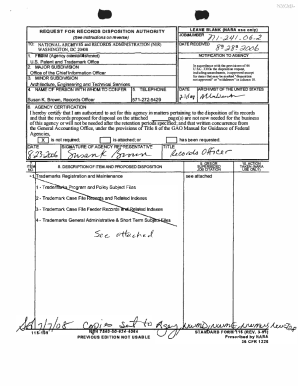 REQUEST FOR RECORDS DISPOSITION AUTHORITY
(See Instructions on reverse)
LEAVE BLANK (NARA use only)
JOB NUMBER
N1-241-06-2
TO: NATIONAL ARCHIVES and RECORDS ADMINISTRATION (NIR)
WASHINGTON, DC 20408
DATE RECEIVED
8-28-2006
1. FROM (Agency or establishment)
U.S. Patent and Trademark Office
NOTIFICATION TO AGENCY
2. MAJOR SUBDIVISION
Office of the Chief Information Officer
3. MINOR SUBDIVISION
Architecture, Engineering and Technical Services
4. NAME OF PERSON WITH WHOM TO CONFER
5. TELEPHONE
Susan K. Brown, Records Officer
571-272-5429
DATE
ARCHIVIST OF THE UNITED STATES
6. AGENCY CERTIFICATION
I hereby certify that I am authorized to act for this agency in matters pertaining to the disposition of its records
and that the records proposed for disposal on the attached page(s) are not now needed for the business
of this agency or will not be needed after the retention periods specified; and that written concurrence from
the General Accounting Office, under the provisions of Title 8 of the GAO Manual for Guidance of Federal
Agencies,
X is not required; is attached; or has been requested.
DATE
SIGNATURE OF AGENCY REPRESENTATIVE
TITLE
Susan K Brown
Records Officer
7. ITEM NO
8. DESCRIPTION OF ITEM AND PROPOSED DISPOSITION
9. GRS OR SUPERSEDED JOB CITATION
10. ACTION TAKEN (NARA USE ONLY)
1 - Trademarks Registration and Maintenance
see attached
1 - Trademarks Program and Policy Subject Files
2 - Trademark Case File Records and Related Indexes
3 - Trademark Case File Feeder Records and Related Indexes
4 - Trademarks General Administrative & Short Term Subject Files
See attached
7/7/08 Copies sent to Agency
115-109
NSN 7540-00-634-4064
STANDARD FORM 115 (REV. 3-91)
PREVIOUS EDITION NOT USABLE
Prescribed by NARA
36 CFR 1228